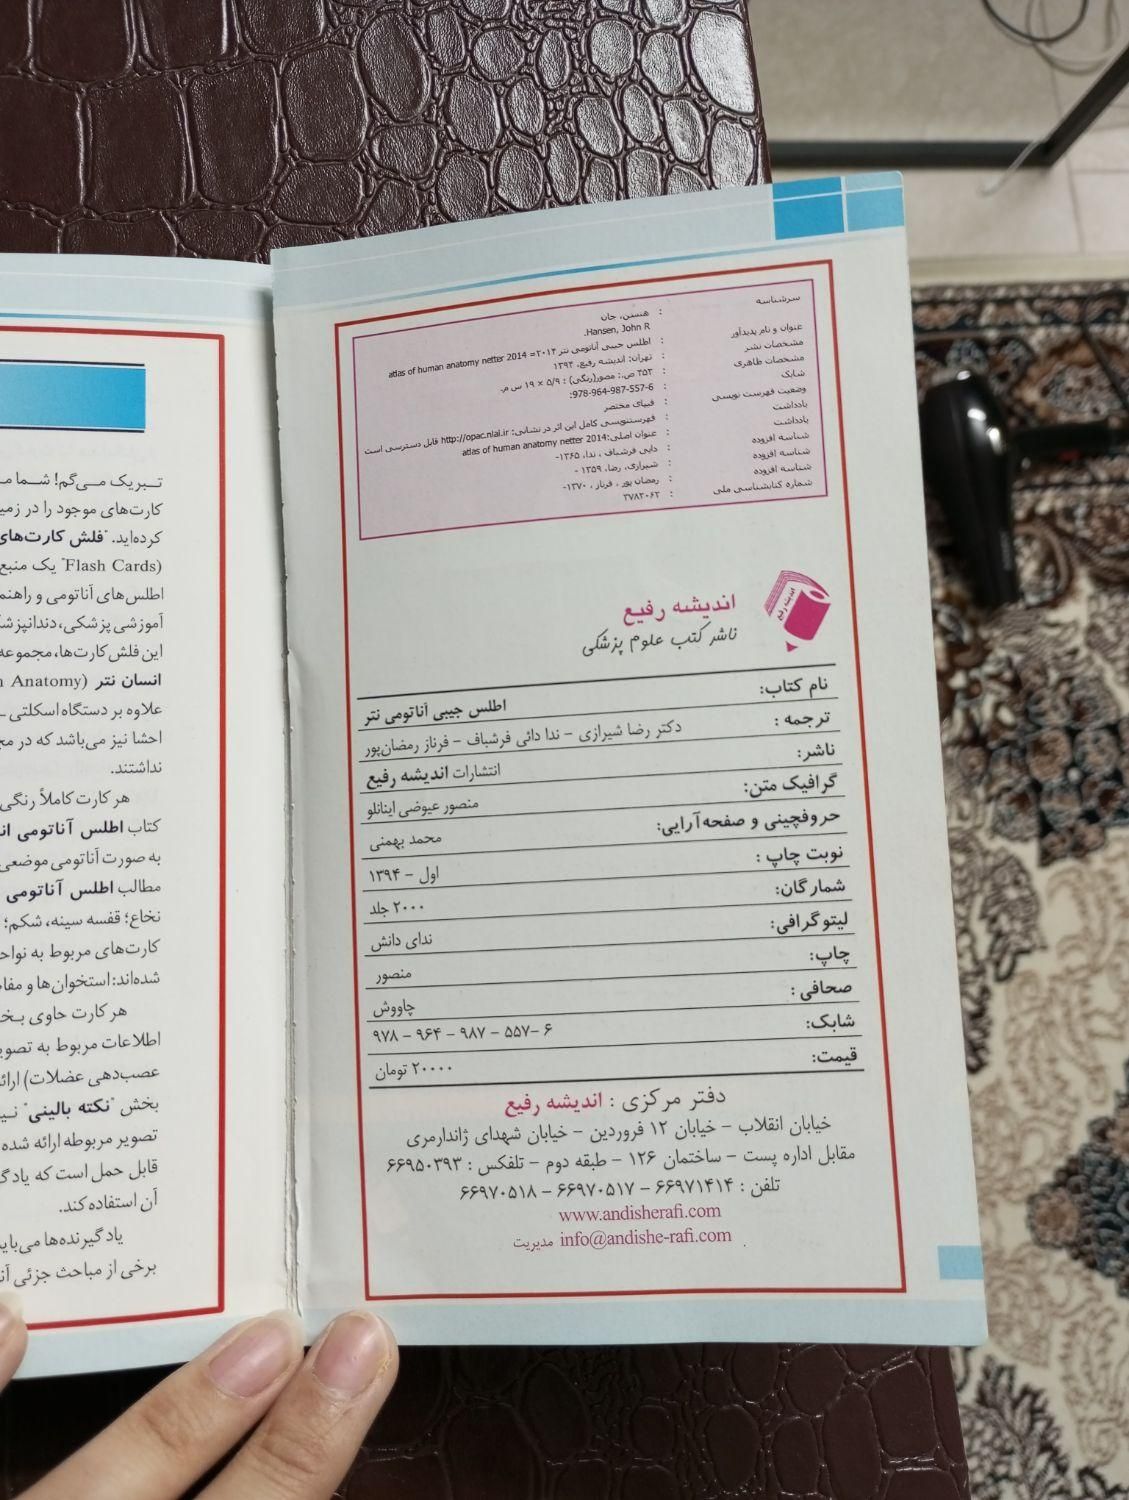 سرشناسه : هنسن، جان
Hansen, John R.
عنوان و نام پدیدآور : اطلس جیبی آناتومی نتر ۲۰۱۴= atlas of human anatomy netter 2014
مشخصات نشر : تهران: اندیشه رفیع، ۱۳۹۴
مشخصات ظاهری : ۳۵۲ ص.: مصور(رنگی) ؛ ۵/۹ × ۱۹ س م.
شابک : 978-964-987-557-6:
وضعیت فهرست نویسی : فیپای مختصر
یادداشت : فهرستنویسی کامل این اثر در نشانی: http://opac.nlai.ir قابل دسترسی است
یادداشت : عنوان اصلی:atlas of human anatomy netter 2014
شناسه افزوده : دایی فرشباف ، ندا، ۱۳۶۵-
شناسه افزوده : شیرازی، رضا، ۱۳۵۹ -
شناسه افزوده : رمضان پور ، فرناز ، ۱۳۷۰-
شماره کتابشناسی ملی : ۳۷۸۳۰۶۲
اندیشه رفیع
اندیشه رفیع
ناشر کتب علوم پزشکی
نام کتاب: اطلس جیبی آناتومی نتر
ترجمه : دکتر رضا شیرازی – ندا دائی فرشباف – فرناز رمضان‌پور
ناشر: انتشارات اندیشه رفیع
گرافیک متن: منصور عیوضی اینانلو
حروفچینی و صفحه‌آرایی: محمد بهمنی
نوبت چاپ : اول – ۱۳۹۴
شمارگان: ۲۰۰۰ جلد
لیتوگرافی: ندای دانش
چاپ: منصور
صحافی : چاووش
شابک: ۹۷۸ – ۹۶۴ – ۹۸۷ – ۵۵۷– ۶
قیمت: ۲۰۰۰۰ تومان
دفتر مرکزی : اندیشه رفیع
خیابان انقلاب – خیابان ۱۲ فروردین – خیابان شهدای ژاندارمری
مقابل اداره پست – ساختمان ۱۲۶ – طبقه دوم – تلفکس : ۶۶۹۵۰۳۹۳
تلفن : ۶۶۹۷۱۴۱۴ – ۶۶۹۷۰۵۱۷ – ۶۶۹۷۰۵۱۸
www.andisherafi.com
info@andishe-rafi.com مدیریت
تبریک می‌گم! شما
کارت‌های موجود را در
کرده‌اید. "فلش کارت‌های
Flash Cards)" یک منبع
اطلس‌های آناتومی و
آموزشی پزشکی،
این فلش‌کارت‌ها، مجموعه
انسان نتر (Anatomy
علاوه بر دستگاه اسکلتی
احشا نیز می‌باشد که در
نداشتند.
هر کارت کاملاً رنگی
کتاب اطلس آناتومی
به صورت آناتومی موضعی
مطالب اطلس آناتومی
نخاع؛ قفسه سینه، شکم؛
کارت‌های مربوط به
شده‌اند: استخوان‌ها و
هر کارت حاوی
اطلاعات مربوط به
عصب‌دهی عضلات)
بخش "نکته بالینی"
تصویر مربوطه ارائه شده
قابل حمل است که
آن استفاده کند.
یادگیرنده‌ها
برخی از مباحث جزئی